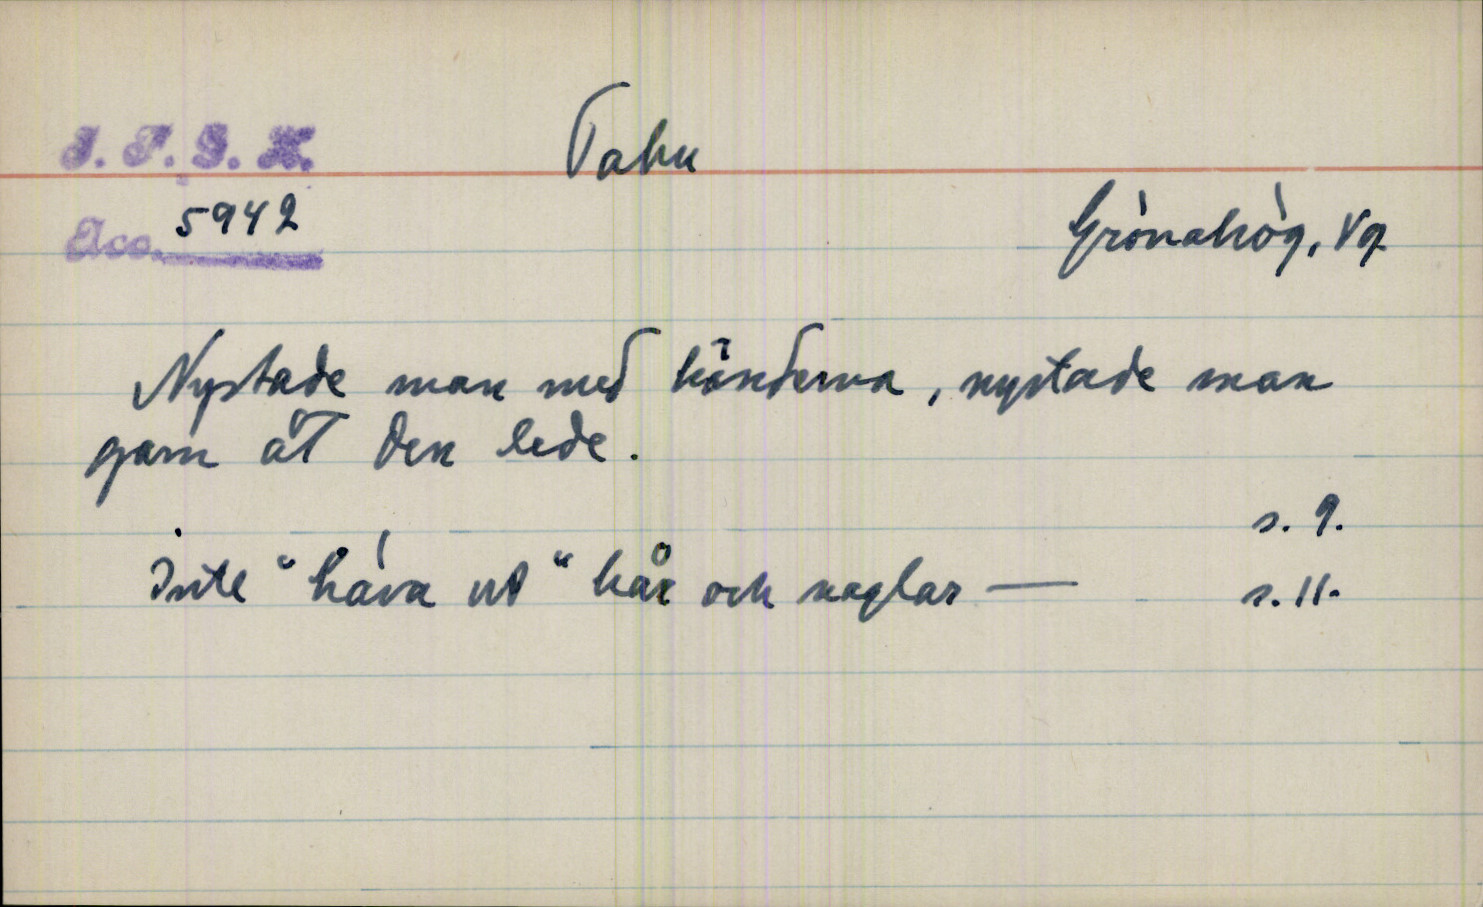 I. F. G. H.
Tabu
Acc. 5942
Grönahög, Vg
Nystade man med händerna, nystade man
garn åt den lede.
s. 9.
Inte "håva ut" hår och naglar —
s. 11.